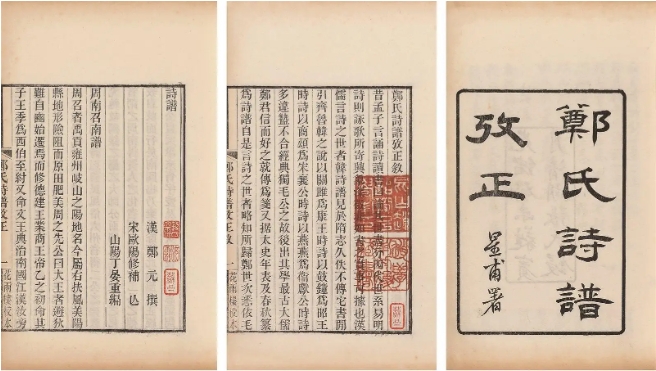 鄭氏詩譜
攷正
署
鄭氏詩譜攷正敘
昔孟子言誦詩讀
詩則詠歌所寄 據也漢
儒言詩之世者韓詩譜見於隋志久佚不傳它書閒
引齊魯韓之說以關雎爲康王時詩以鼓鐘爲昭王
時詩以商頌爲宋襄公時詩以燕燕爲衞獻公時詩
多違盭不合經典獨毛公之故後出其學最古大儒
鄭君信而好之就傳爲箋又據太史年表及春秋纂
爲詩譜自是言詩之世者略知所歸鄭世次悉依毛
鄭氏詩譜攷正敘 一 花雨樓校本
詩譜
漢 鄭 元 撰
宋歐陽修補亾
山陽丁晏重編
周南召南譜
周召者禹貢雍州岐山之陽地名今屬右扶風美陽
縣地形險阻而原田肥美周之先公曰大王者避狄
難自豳始遷焉而修德建王業商王帝乙之初命其
子王季爲西伯至紂又命文王典治南國江漢汝旁
鄭氏詩譜攷正 一 花雨樓校本